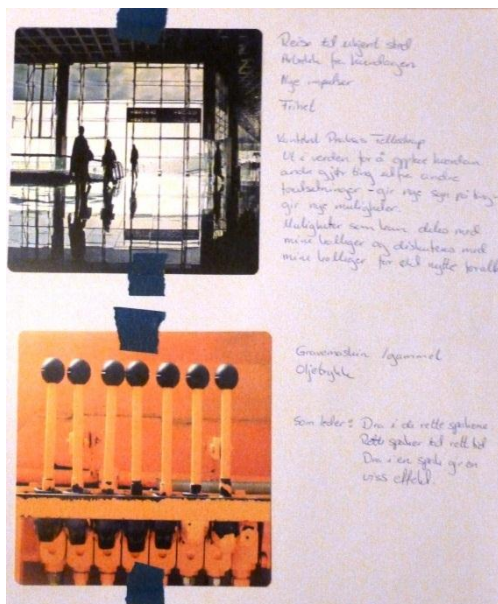 Reise til ukjent sted
Avbrekk fra hverdagen
Nye impulser
Frihet
Kontekst Praksis Fellesskap
Ut i verden for å oppleve hvordan
andre gjør ting ut fra andre
forutsetninger - gir nye syn på ting
gir nye muligheter.
Muligheter som kan deles med
mine kolleger og diskuteres med
mine kolleger for økt nytte for alle
Gravemaskin /gammel
Oljetrykk
Som leder: Dra i de rette spakene
Rette spaker til rett tid
Dra i en spak gir en
viss effekt.